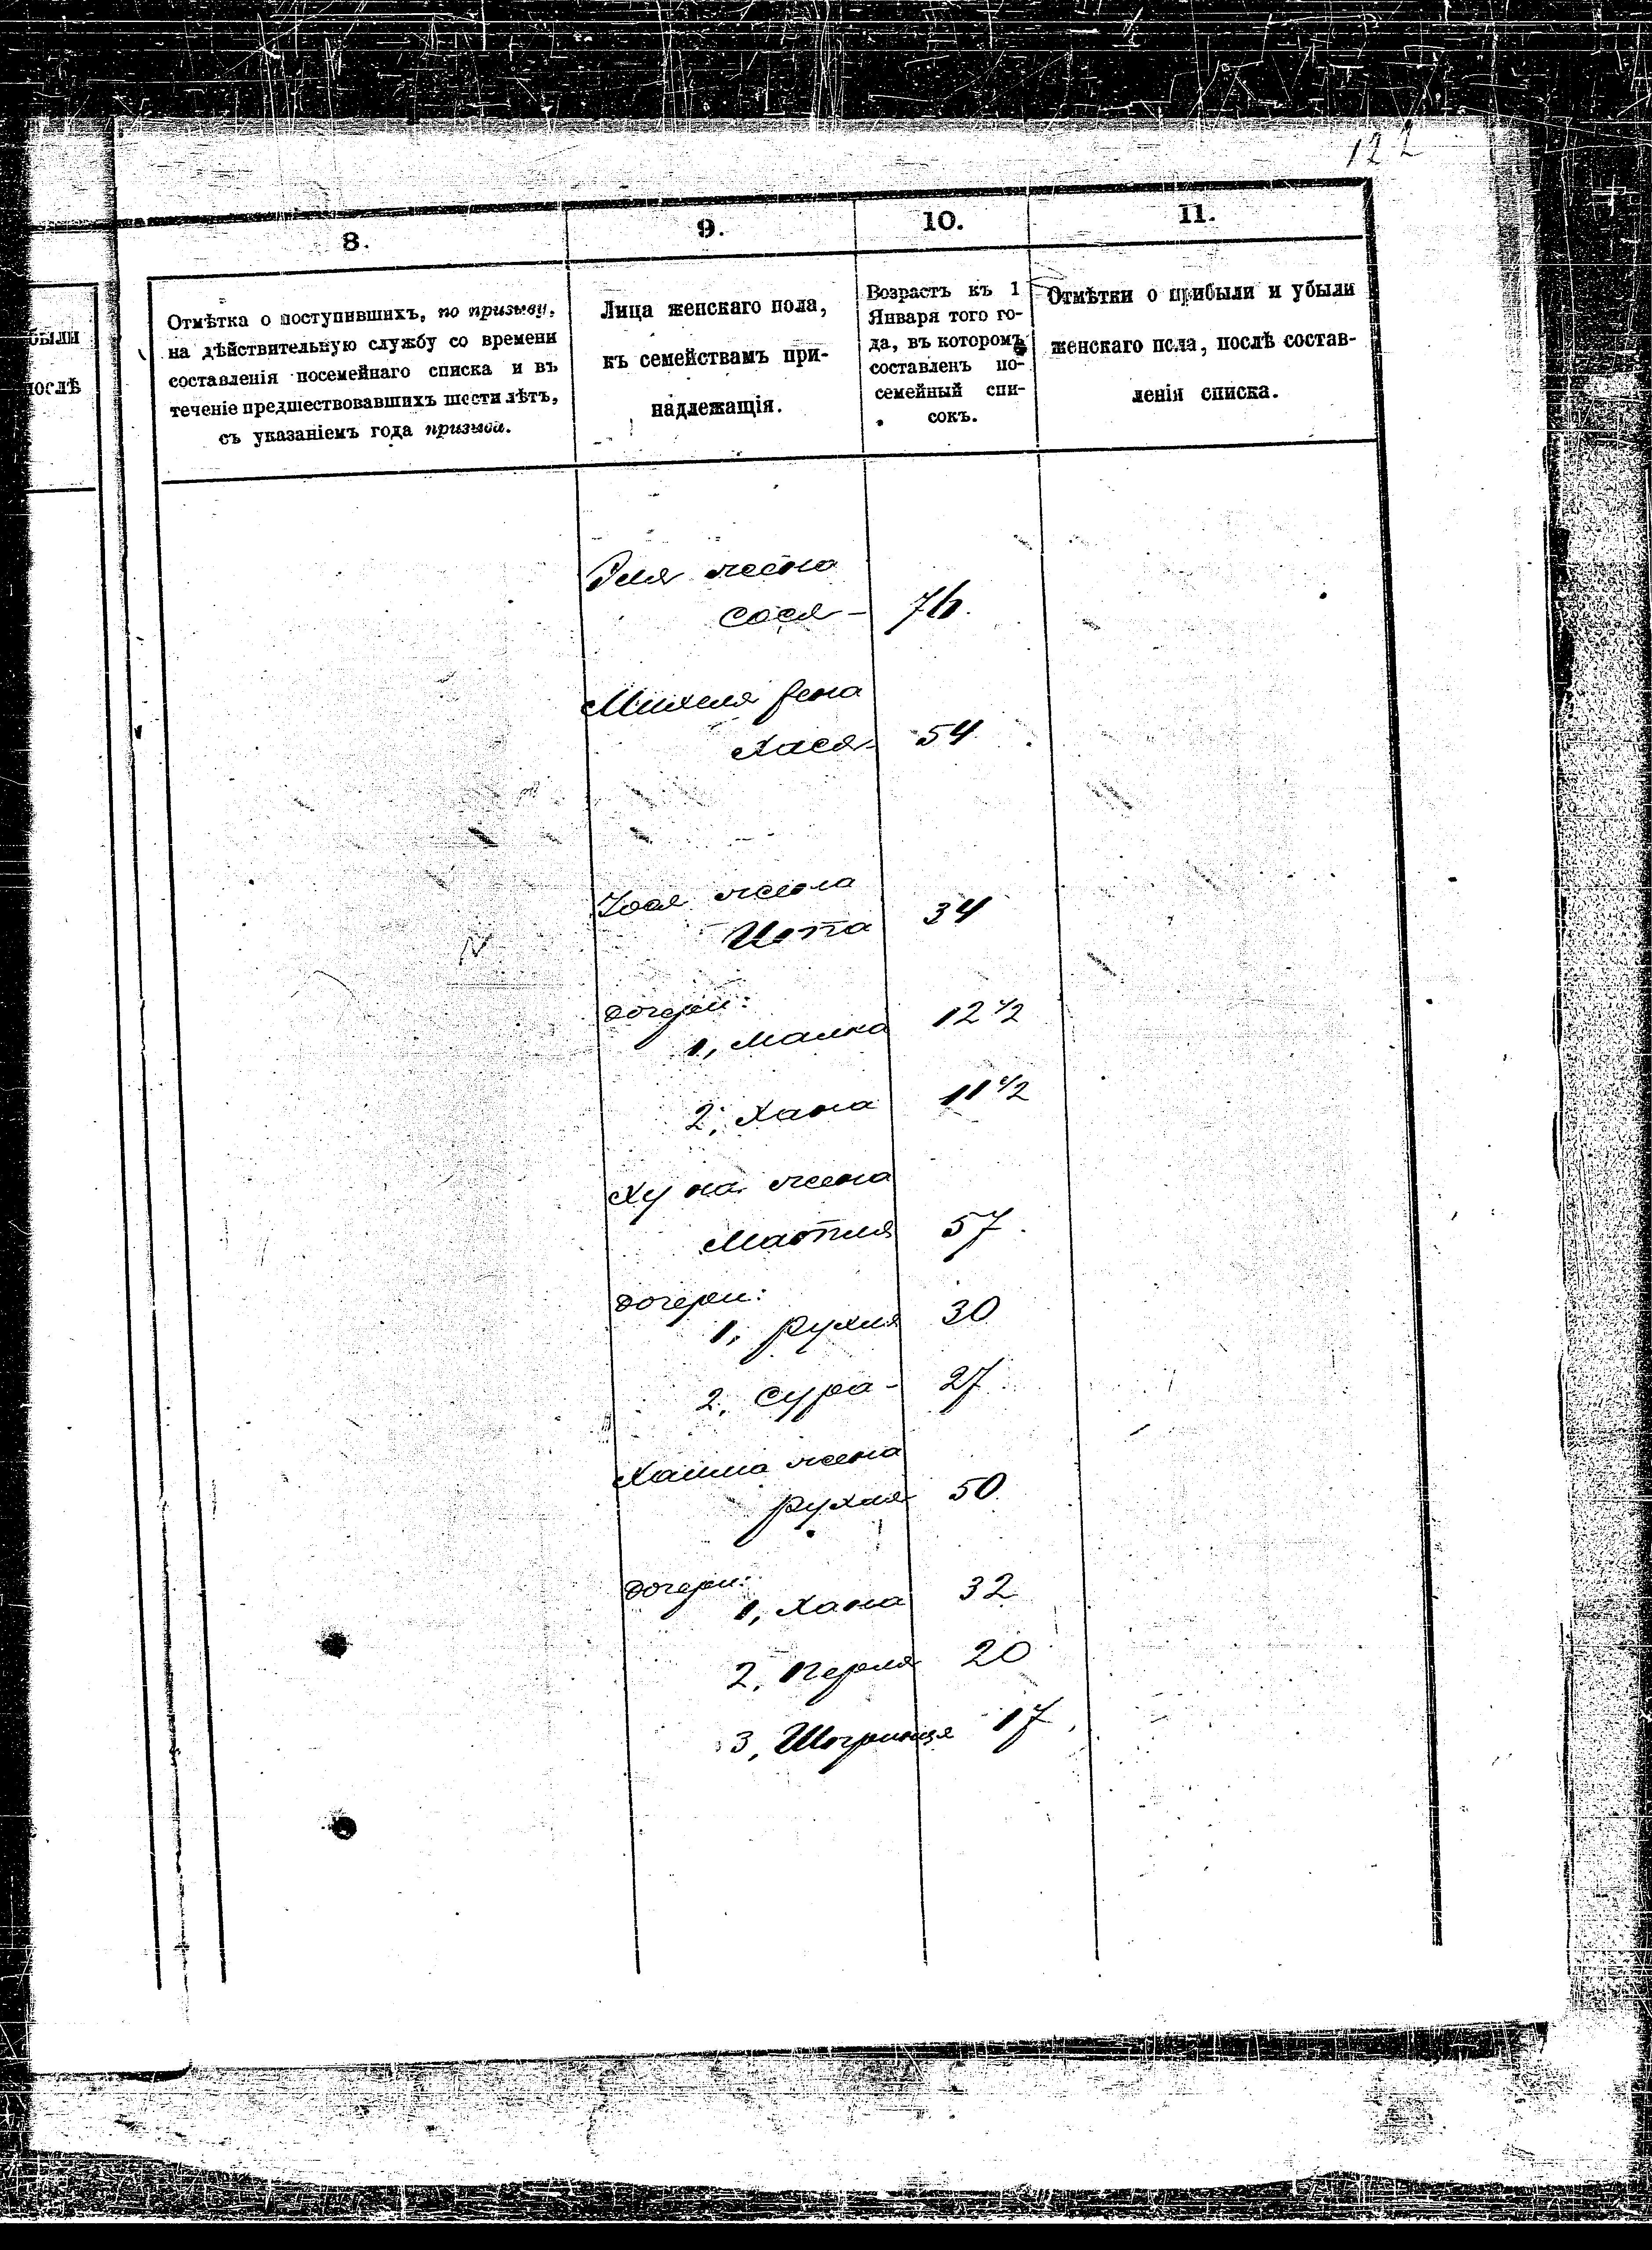 122
8.
9.
10.
11.
Отмѣтка о поступившихъ, по призыву,
на дѣйствительную службу со времени
составленія посемейнаго списка и въ
теченіе предшествовавшихъ шести лѣтъ,
съ указаніемъ года призыва.
Лица женскаго пола,
къ семействамъ при-
надлежащія.
Возрастъ къ 1
Января того го-
да, въ которомъ
составленъ по-
семейный спи-
сокъ.
Отмѣтки о прибыли и убыли
женскаго пола, послѣ состав-
ленія списка.
были
послѣ
жена
Сося - 76.
Михеля жена
Хася - 54
жена
Ита 34
дочери:
1, Малка 12 1/2
2, Хана 11 1/2
Хуна жена
Матля 57.
дочери:
1, Рухля 30
2, Сура - 27
Хаима жена
Рухля 50
дочери:
1, Хана 32
2, Перля 20
3, 17